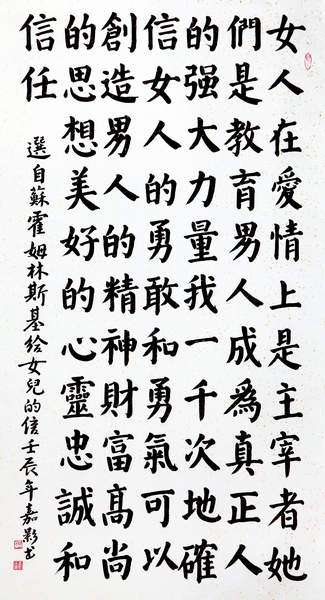 女人在愛情上是主宰者她
們是教育男人成為真正人
的强大力量我一千次地確
信女人的勇敢和勇氣可以
創造男人的精神財富高尚
的思想美好的心靈忠誠和
信任
選自蘇霍姆林斯基給女兒的信壬辰年嘉影书